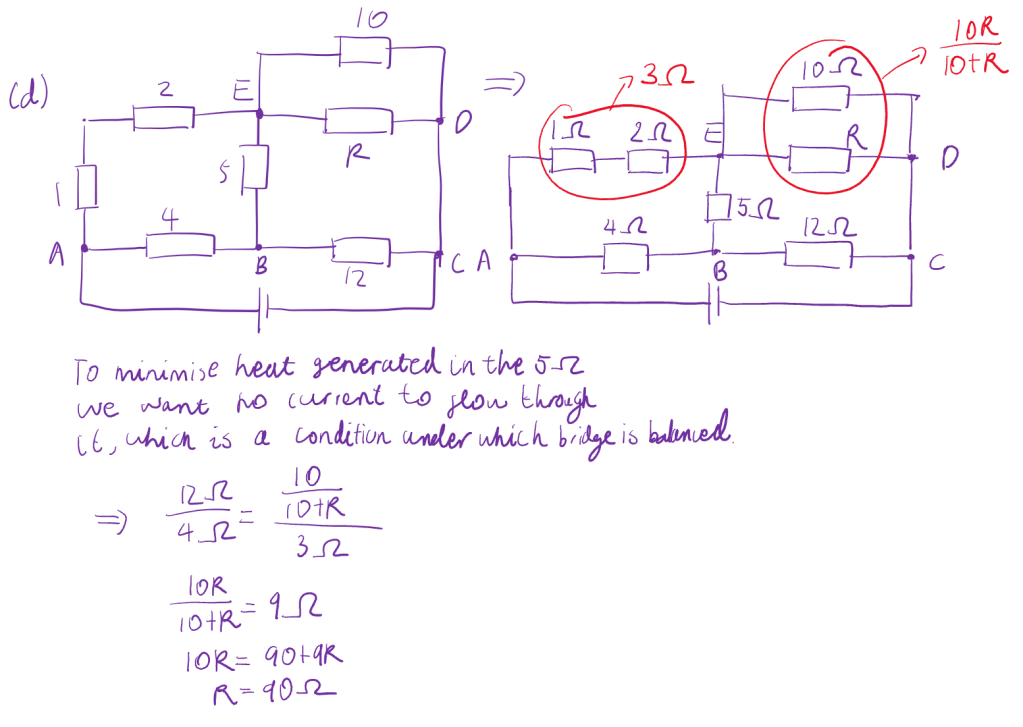 (d)
10
2
E
D
R
5
1
4
A
B
12
C
⇒
10R
10+R
3Ω
10Ω
1Ω 2Ω
E
R
D
5Ω
4Ω
12Ω
A
B
C
To minimise heat generated in the 5Ω
we want no current to flow through
it, which is a condition under which bridge is balanced.
⇒ 12Ω/4Ω = (10/(10+R))/3Ω
10R/(10+R) = 9Ω
10R = 90+9R
R = 90Ω